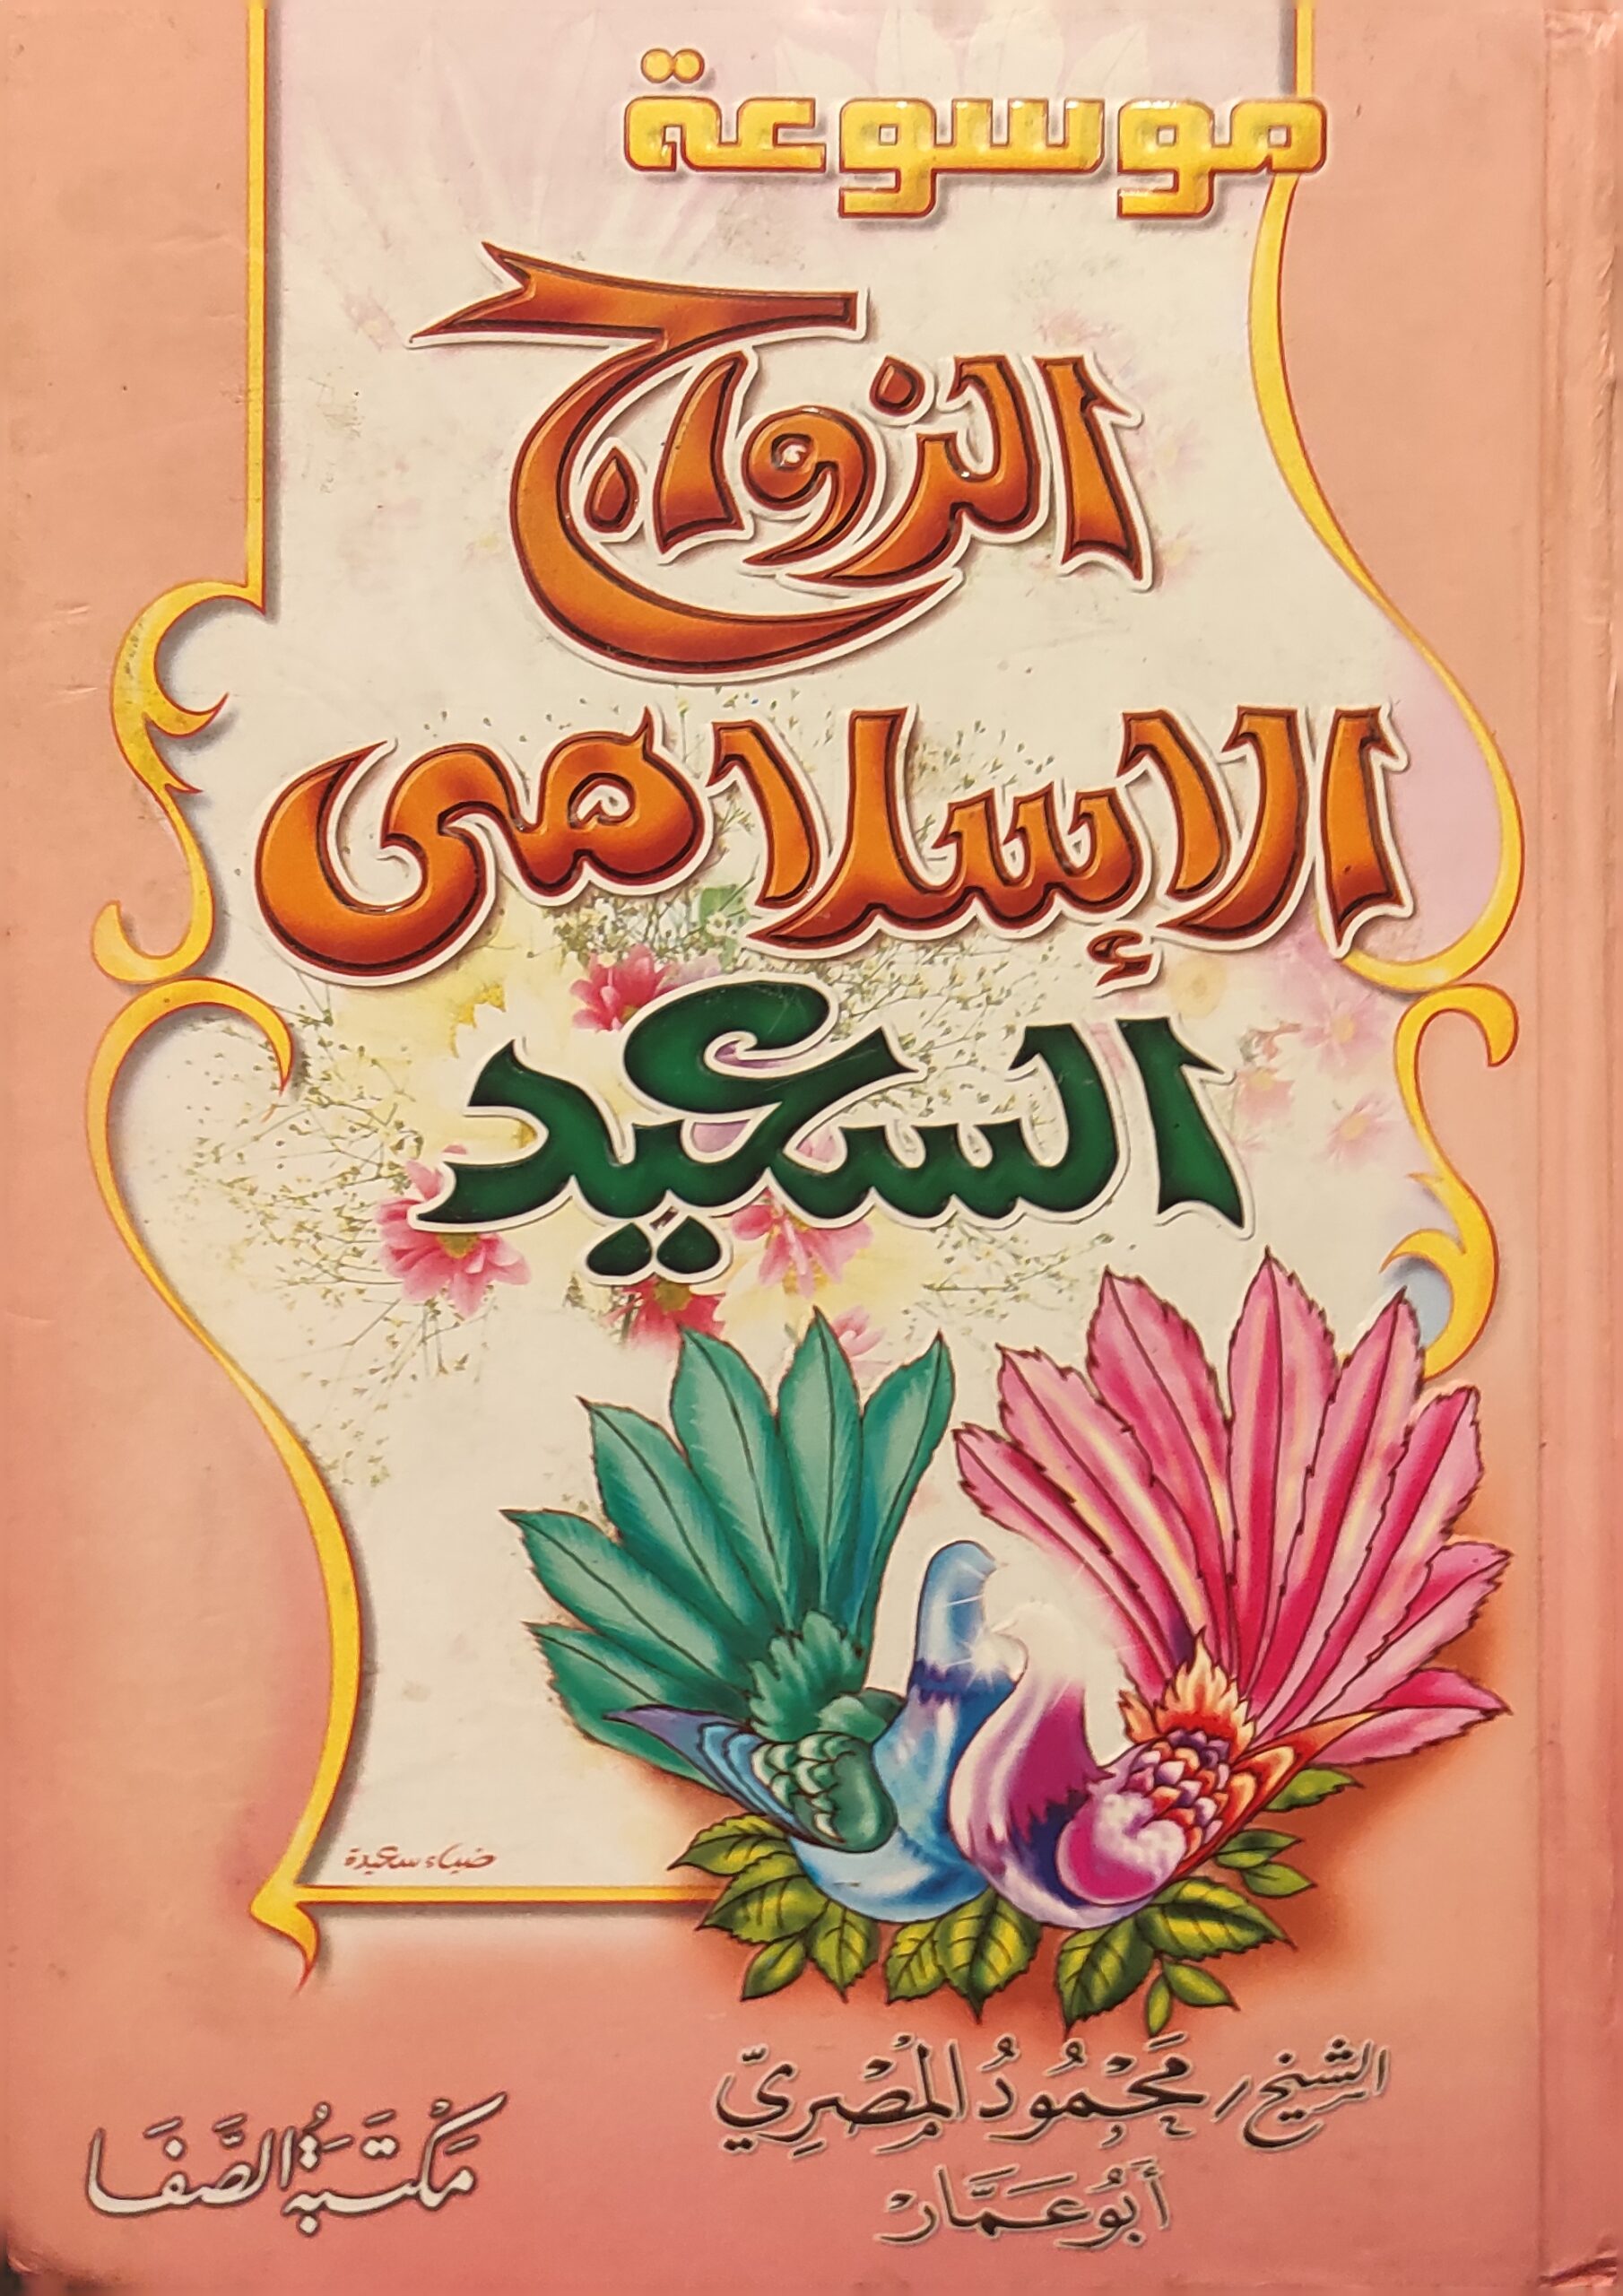 موسوعة
الزواج
الإسلامى
السعيد
ضياء سعيدة
الشيخ / مَحْمُودُ المْصْرِيّ
أَبُو عَمَّارْ
مَكْتَبَةُ الصَّفَا